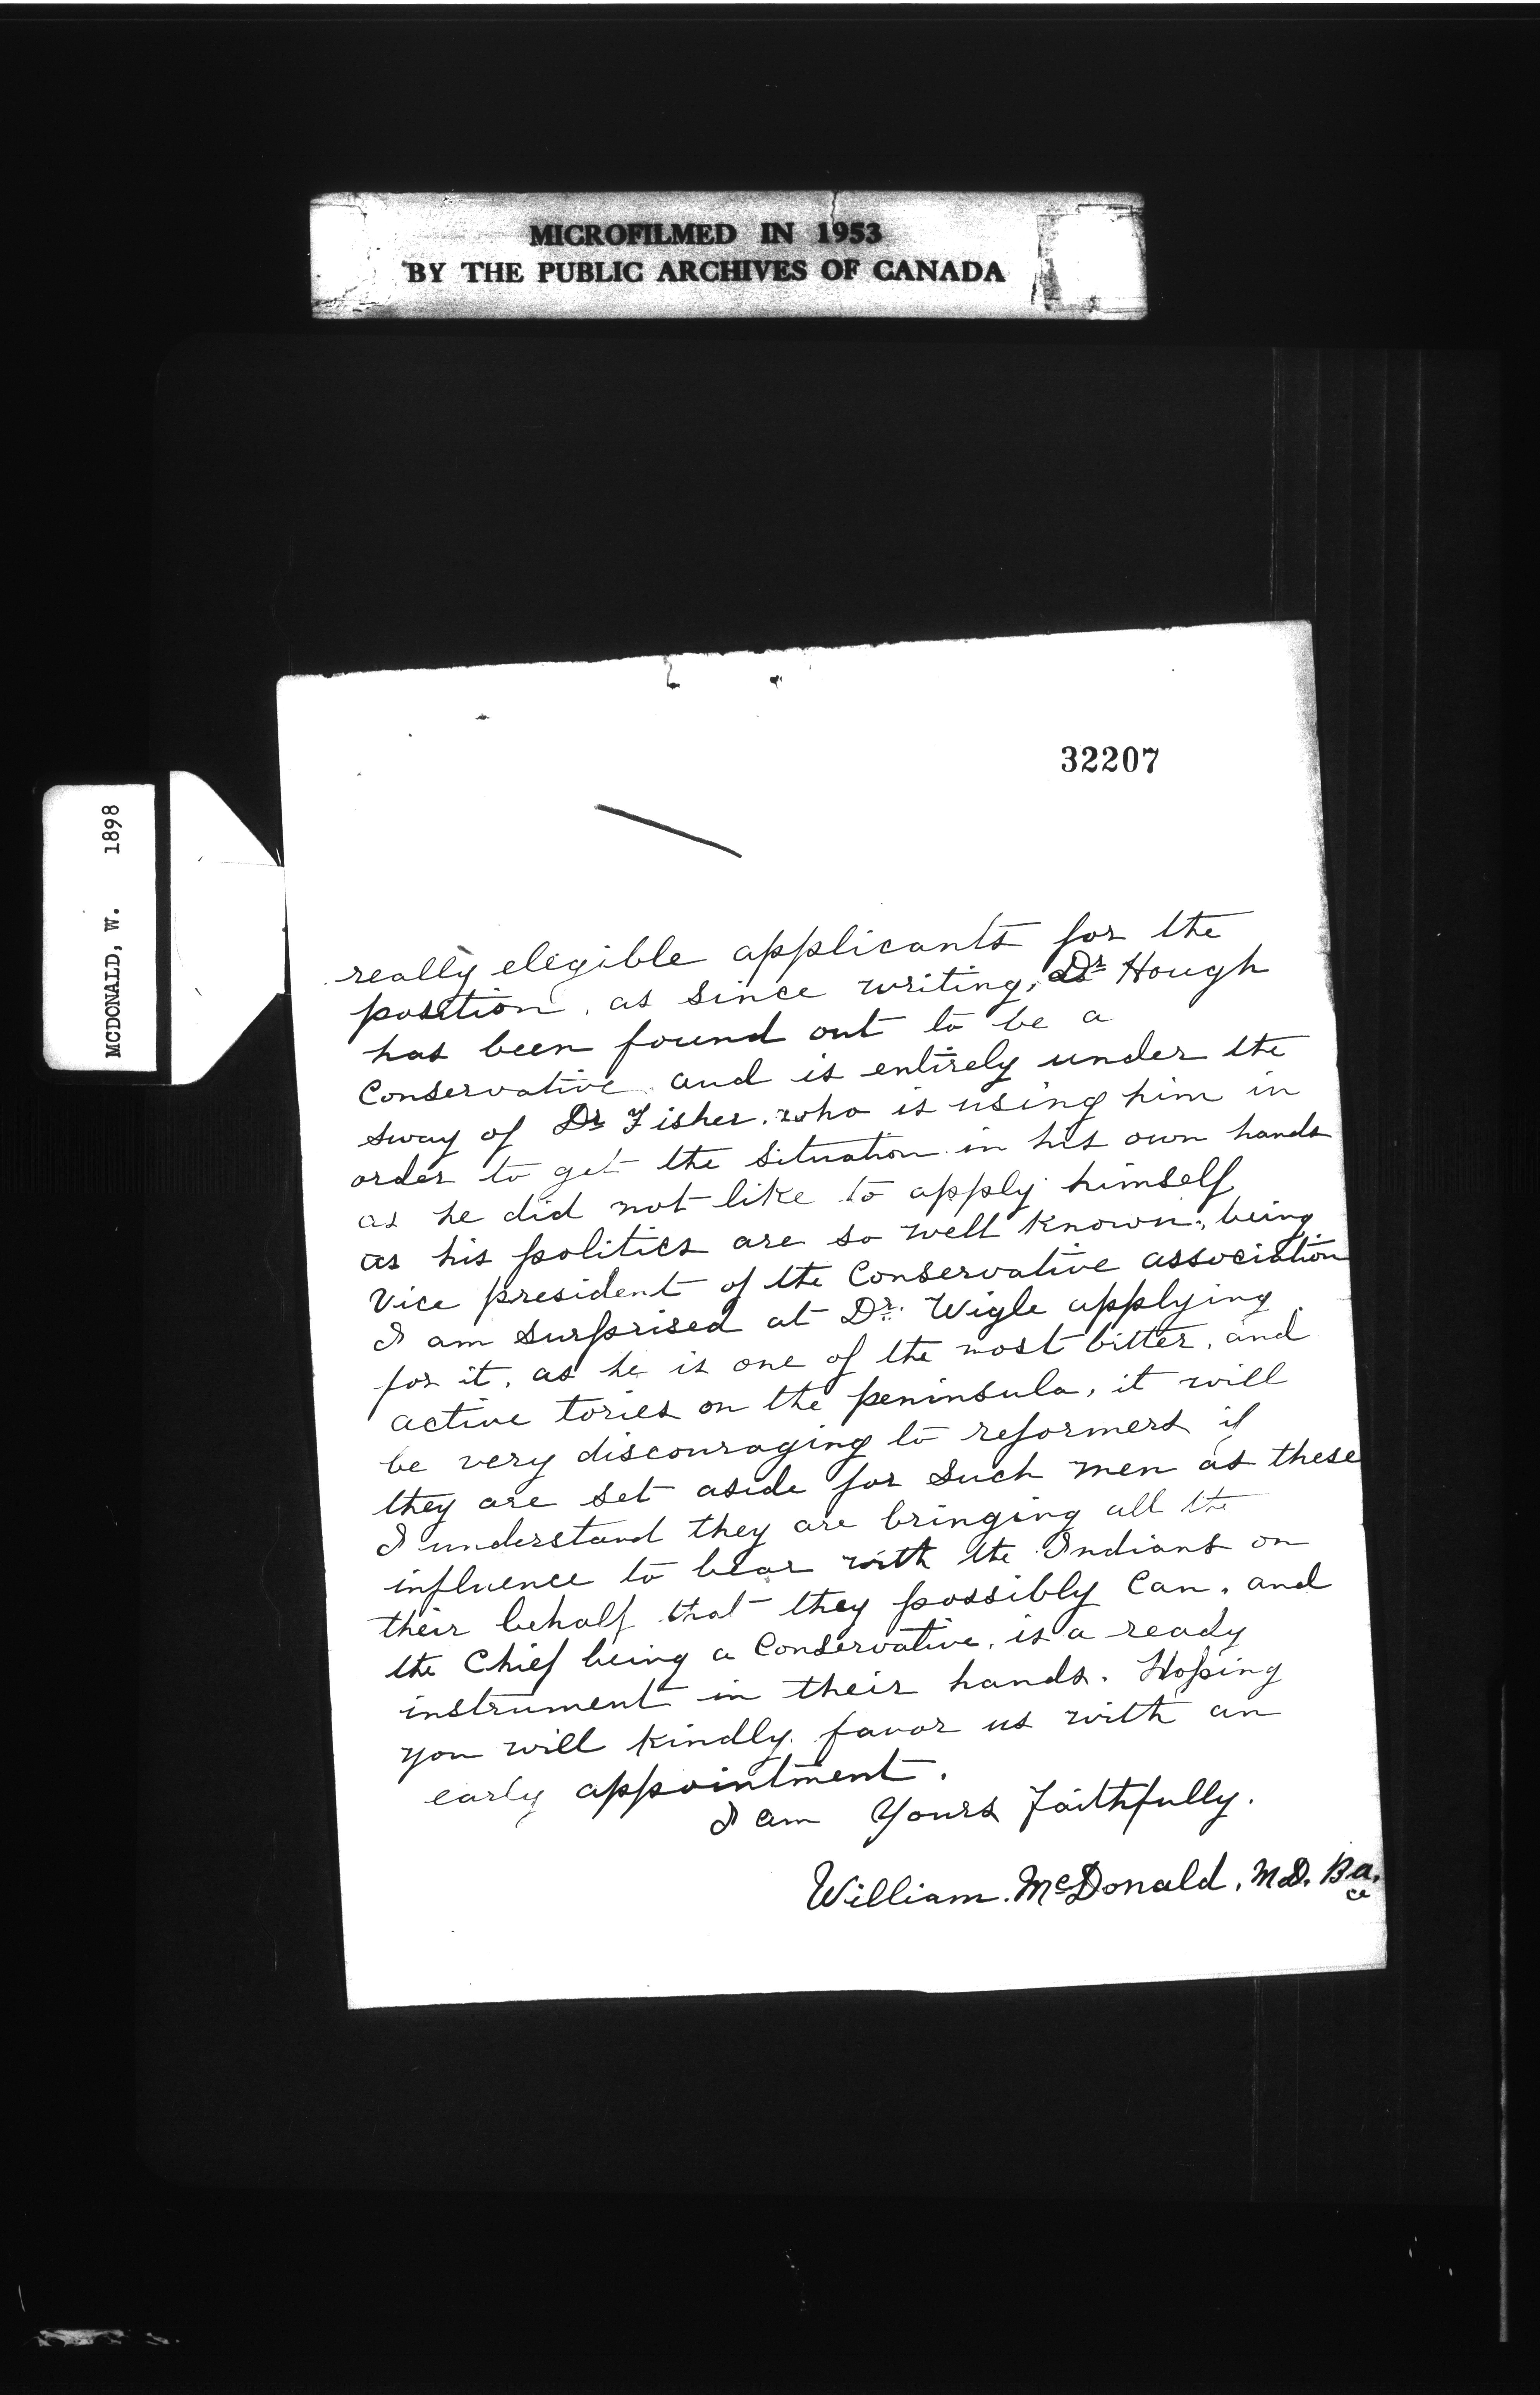 MICROFILMED IN 1953
BY THE PUBLIC ARCHIVES OF CANADA
MCDONALD, W. 1898
32207
really elegible applicants for the
position, as since writing, Dr Hough
has been found out to be a
Conservative and is entirely under the
sway of Dr Fisher. who is using him in
order to get the situation in his own hands
as he did not like to apply himself
as his politics are so well known, being
Vice president of the Conservative association
I am surprised at Dr. Wigle applying
for it, as he is one of the most bitter, and
active tories on the peninsula, it will
be very discouraging to reformers if
they are set aside for such men as these
I understand they are bringing all the
influence to bear with the Indians on
their behalf that they possibly can, and
the Chief being a Conservative, is a ready
instrument in their hands. Hoping
you will kindly favor us with an
early appointment.
I am Yours Faithfully.
William. McDonald, M.D. B.a.